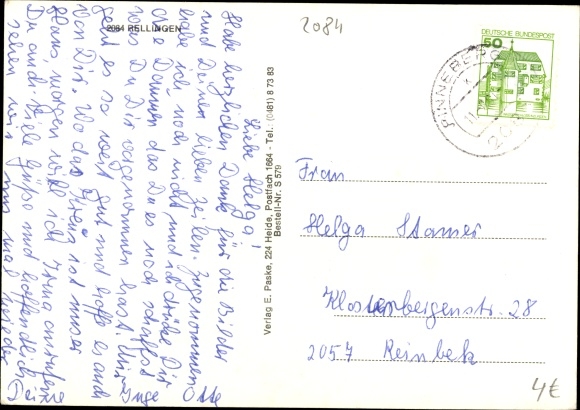 2084
2084 RELLINGEN
DEUTSCHE BUNDESPOST
50
PINNEBERG
Liebe Helga!
Habe herzlichen Dank für die Bilder
und Deinen lieben Zeilen. Zugenommen
habe ich noch nicht und ich drücke Dir
die Daumen das Du es noch schaffst
was Du Dir vorgenommen hast. Uns
geht es so weit gut und hoffe es auch
von Dir. Wo das Kreuz ist unser
Haus, morgen will ich Irma anrufen
Du auch. Viele Grüße und hoffendlich
sehen wir uns mal wieder
Deine
Inge Otto
Verlag E. Paske, 224 Heide, Postfach 1664 - Tel.: (0481) 8 73 83
Bestell-Nr. S 579
Frau
Helga Stamer
Klosterbergenstr. 28
2057 Reinbek
4€